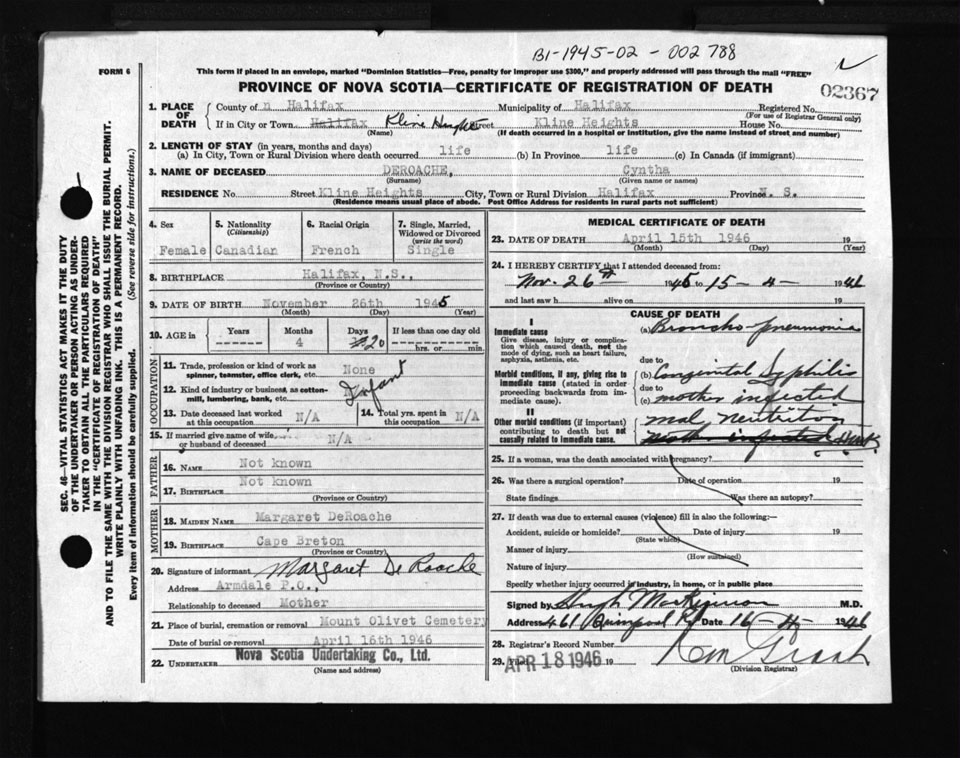 B1-1945-02-002788
FORM 6
This form if placed in an envelope, marked "Dominion Statistics—Free, penalty for improper use $300," and properly addressed will pass through the mail "FREE"
PROVINCE OF NOVA SCOTIA—CERTIFICATE OF REGISTRATION OF DEATH
02367
1. PLACE OF DEATH
County of n Halifax Municipality of Halifax Registered No.
(For use of Registrar General only)
If in City or Town Halifax Kline Heights Street Kline Heights House No.
(Name) (If death occurred in a hospital or institution, give the name instead of street and number)
2. LENGTH OF STAY (in years, months and days)
(a) In City, Town or Rural Division where death occurred life (b) In Province life (c) In Canada (if immigrant)
3. NAME OF DECEASED DEROACHE, Cyntha
(Surname) (Given name or names)
RESIDENCE No Street Kline Heights City, Town or Rural Division Halifax Province N. S.
(Residence means usual place of abode. Post Office Address for residents in rural parts not sufficient)
SEC. 46—VITAL STATISTICS ACT MAKES IT THE DUTY
OF THE UNDERTAKER OR PERSON ACTING AS UNDER-
TAKER TO OBTAIN ALL THE PARTICULARS REQUIRED
IN THE "CERTIFICATE OF REGISTRATION OF DEATH"
AND TO FILE THE SAME WITH THE DIVISION REGISTRAR WHO SHALL ISSUE THE BURIAL PERMIT.
WRITE PLAINLY WITH UNFADING INK. THIS IS A PERMANENT RECORD.
Every item of information should be carefully supplied. (See reverse side for instructions.)
4. Sex 5. Nationality (Citizenship) 6. Racial Origin 7. Single, Married, Widowed or Divorced (write the word)
Female Canadian French Single
8. BIRTHPLACE Halifax, N.S.,
(Province or Country)
9. DATE OF BIRTH November 26th 1945
(Month) (Day) (Year)
10. AGE in Years Months Days If less than one day old
4 20 hrs. or min.
OCCUPATION
11. Trade, profession or kind of work as spinner, teamster, office clerk, etc. None
12. Kind of industry or business, as cotton-mill, lumbering, bank, etc. Infant
13. Date deceased last worked at this occupation N/A 14. Total yrs. spent in this occupation N/A
15. If married give name of wife or husband of deceased N/A
FATHER
16. NAME Not known
17. BIRTHPLACE Not known
(Province or Country)
MOTHER
18. MAIDEN NAME Margaret DeRoache
19. BIRTHPLACE Cape Breton
(Province or Country)
20. Signature of informant Margaret DeRoache
Address Armdale P.O.,
Relationship to deceased Mother
21. Place of burial, cremation or removal Mount Olivet Cemetery
Date of burial or removal April 16th 1946
22. UNDERTAKER Nova Scotia Undertaking Co., Ltd.
(Name and Address)
MEDICAL CERTIFICATE OF DEATH
23. DATE OF DEATH April 15th 1946 19
(Month) (Day) (Year)
24. I HEREBY CERTIFY that I attended deceased from:
Nov. 26th 1945 to 15 - 4 - 1946
and last saw h alive on 19
CAUSE OF DEATH
I
Immediate cause (a) Broncho-pneumonia
Give disease, injury or complication which caused death, not the mode of dying, such as heart failure, asphyxia, asthenia, etc.
due to
Morbid conditions, if any, giving rise to immediate cause (stated in order proceeding backwards from immediate cause).
(b) Congenital Syphilis
due to
(c) mother infected
II
Other morbid conditions (if important) contributing to death but not causally related to immediate cause.
mal nutrition
25. If a woman, was the death associated with pregnancy?
26. Was there a surgical operation? Date of operation 19
State findings Was there an autopsy?
27. If death was due to external causes (violence) fill in also the following:—
Accident, suicide or homicide? Date of injury 19
(State which)
Manner of injury
(How sustained)
Nature of injury
Specify whether injury occurred in industry, in home, or in public place
Signed by Hugh MacKinnon M.D.
Address 461 Quinpool Rd Date 16 - 4 - 1946
28. Registrar's Record Number
29. Filed APR 18 1946 19
(Division Registrar)